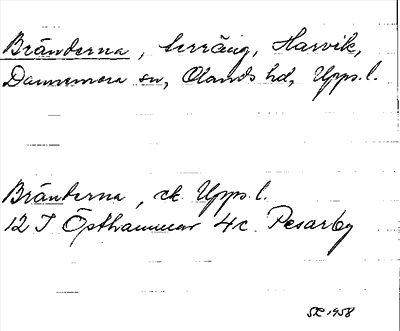 Bränderna, terräng, Harvik,
Dannemora sn, Olands hd, Upps. l.
Bränderna, ek Upps. l.
12 I Östhammar 4c Pesarby
SR 1958